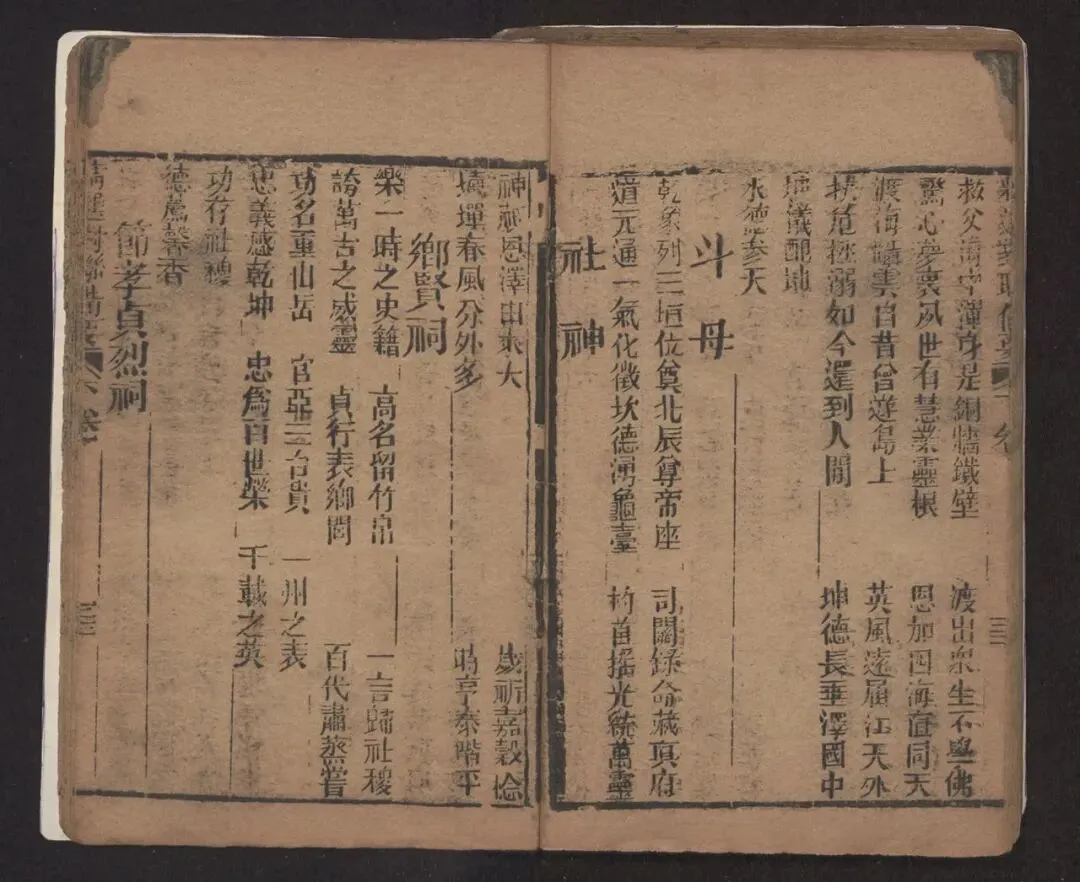 救父齋中渾身是銅牆鐵壁 渡出衆生不學佛
驚心夢裏夙世有慧業靈根 恩加四海直同天
渡海驅雲自昔曾遊島上 英風遠届江天外
扶危拯溺如今還到人間 坤德長垂澤國中
坤儀配地
水德參天
斗母
乾象列三垣位奠北辰尊帝座 司闢錄命藏真府
道元通一氣化徵坎德湧龜臺 杓首搖光統萬靈
社神
神祇恩澤由來大 歲祈嘉穀
壇墠春風分外多 時亨泰階平
鄉賢祠
樂一時之史籍 高名留竹帛 一言歸社稷
誇萬古之威靈 貞行表鄉閭 百代肅蒸嘗
功名重山岳 官亞三台貴 一州之表
忠義感乾坤 忠爲百世榮 千載之英
功存社稷
德薦馨香
節孝貞烈祠
卷